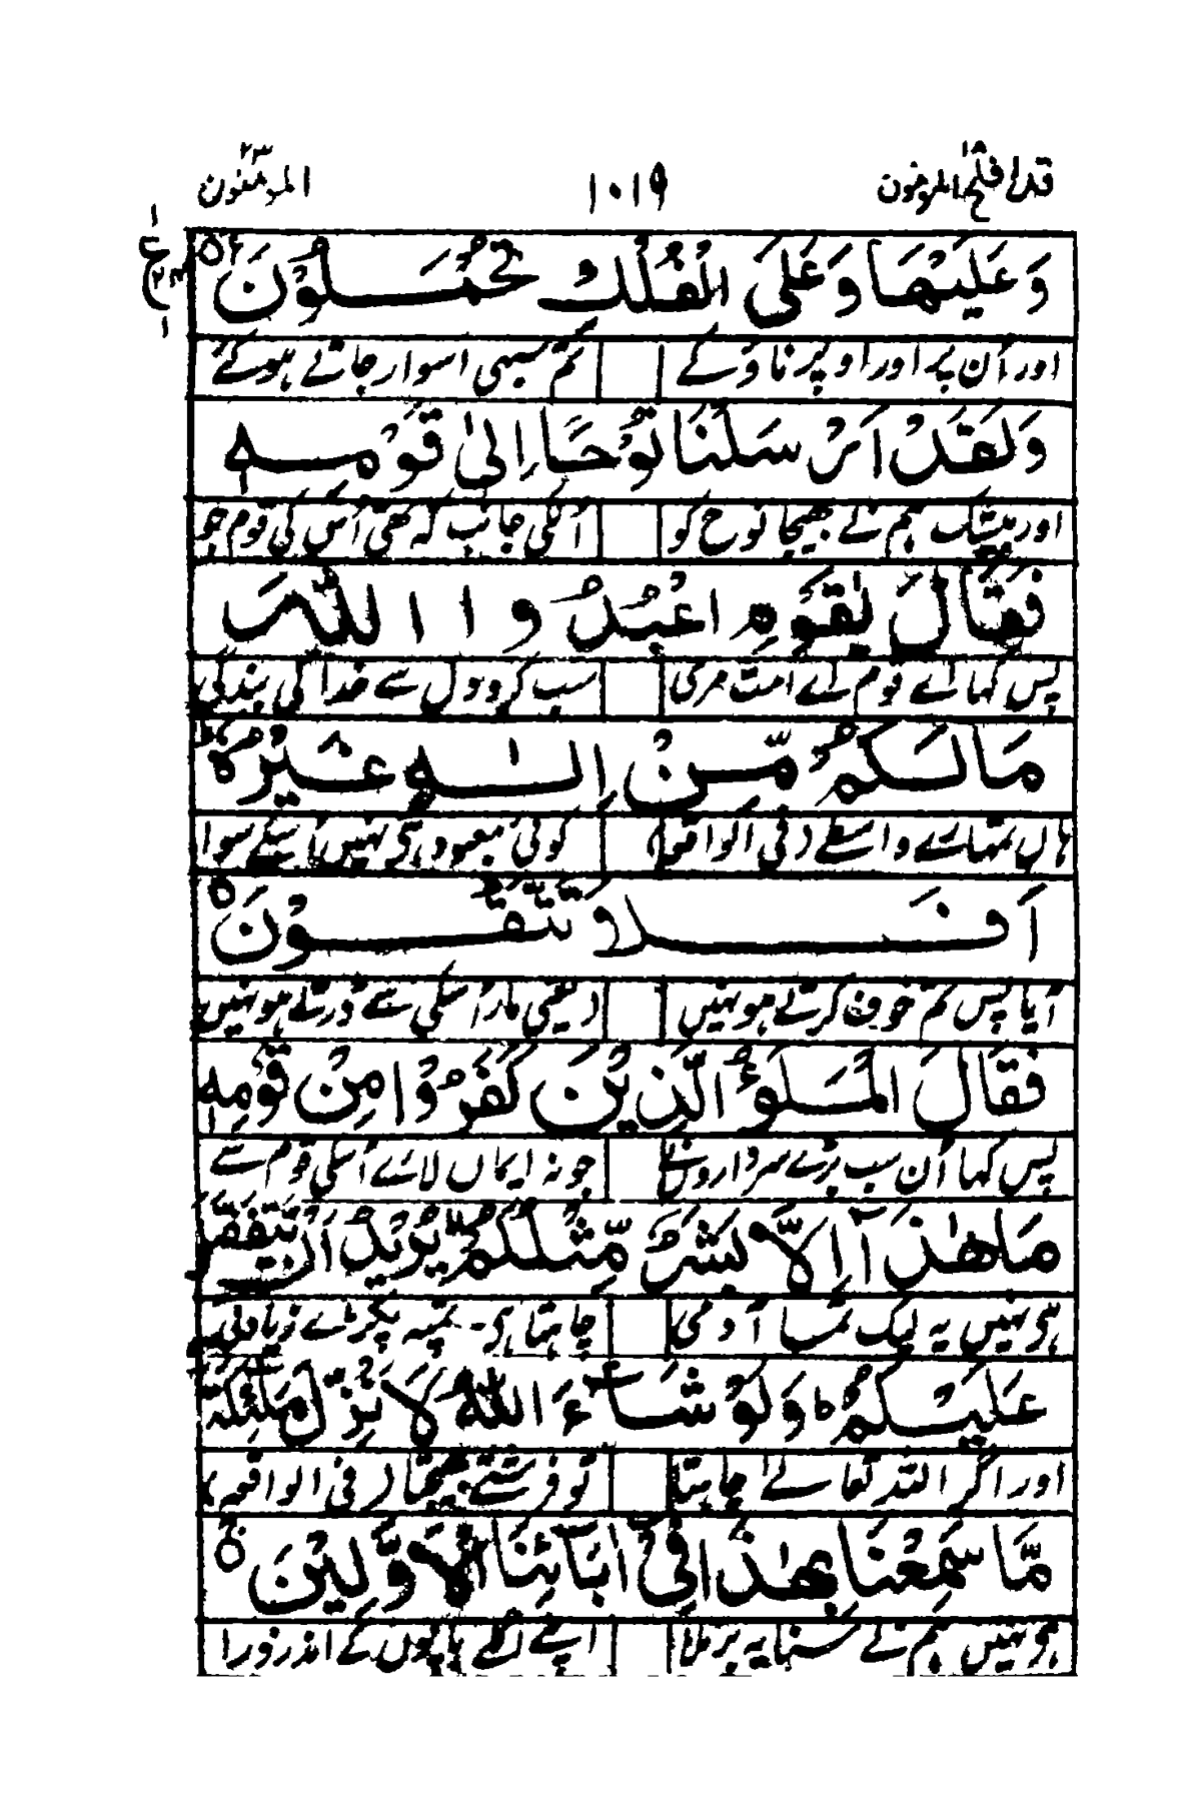 قد افلح ١٨ المؤمنون ١٠١٩ المؤمنون ٢٣
وَعَلَيْهَا وَعَلَى الْفُلْكِ تُحْمَلُوْنَ
اور اُن پر اور اوپر ناؤ کے تم سبھی اسوار جاتے ہو کئے
وَلَقَدْ اَرْسَلْنَا نُوْحًا اِلٰى قَوْمِهٖ
اور بیشک ہم نے بھیجا نوح کو اُنکی جانب کہ تھی اُس کی قوم جو
فَقَالَ يٰقَوْمِ اعْبُدُوا اللّٰهَ
پس کہا اے قوم اے امت مری سب کرو دل سے خدا کی بندگی
مَا لَكُمْ مِّنْ اِلٰهٍ غَيْرُهٗ ط
ہاں تمہارے واسطے (فی الواقع) کوئی معبود ہی نہیں اُسکے سوا
اَفَلَا تَتَّقُوْنَ
آیا پس تم خوف کرتے ہو نہیں (یعنی مار اُسکی سے ڈرتے ہو نہیں
فَقَالَ الْمَلَؤُا الَّذِيْنَ كَفَرُوْا مِنْ قَوْمِهٖ
پس کہا اُن سب بڑے سرداروں نے جو نہ ایماں لائے اُسکی قوم سے
مَا هٰذَآ اِلَّا بَشَرٌ مِّثْلُكُمْ يُرِيْدُ اَنْ يَّتَفَضَّلَ
ہی نہیں یہ لیک تم سا آدمی چاہتا ہی۔ تمپہ پکڑے زیادتی
عَلَيْكُمْ ط وَلَوْ شَآءَ اللّٰهُ لَاَنْزَلَ مَلٰٓئِكَةً
اور اگر اللہ تعالے چاہتا تو فرشتے بھیجتا (فی الواقعہ)
مَّا سَمِعْنَا بِهٰذَا فِيْٓ اٰبَآئِنَا الْاَوَّلِيْنَ
ہی نہیں ہم نے سنا یہ برملا اپنے اگلے باپوں کے اندر ذرا